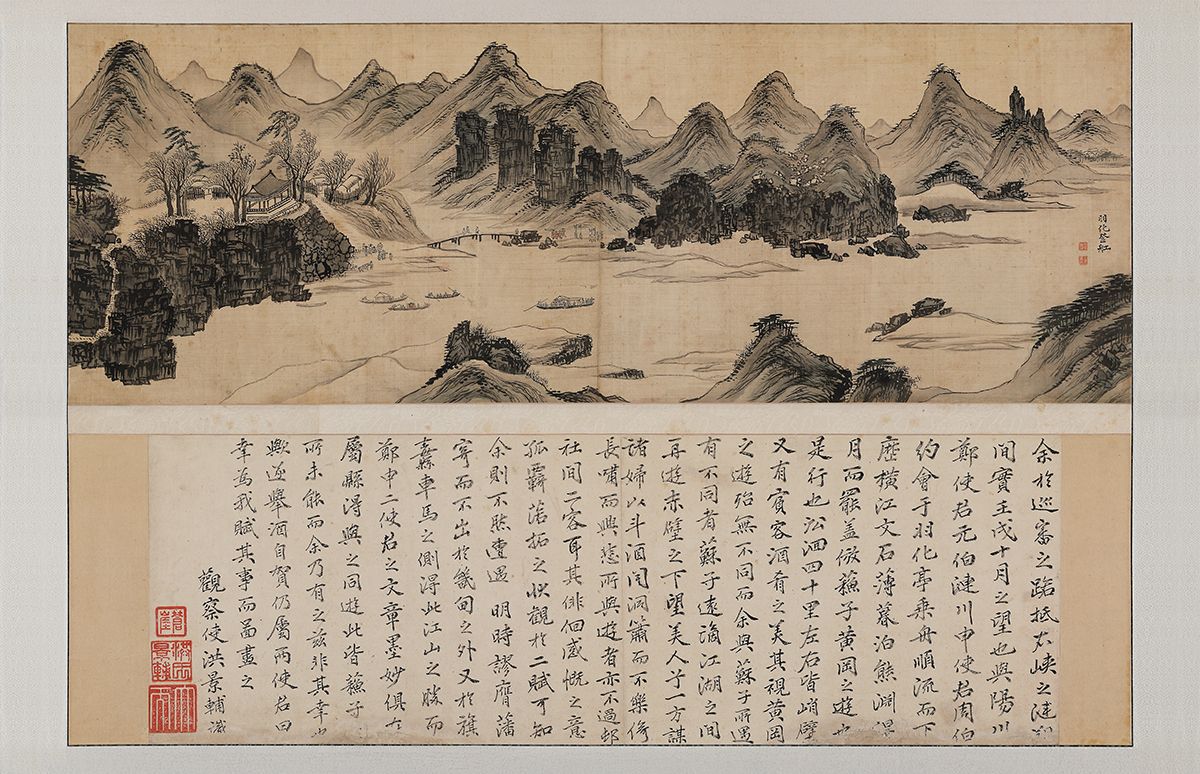 羽化登船
余於巡審之路抵右峽之漣朔
間實壬戌十月之望也與陽川
鄭使君元伯漣川申使君周伯
約會于羽化亭乘舟順流而下
歷橫江文石薄暮泊熊淵
月而罷盖倣蘇子黃岡之遊也
是行也沿洄四十里左右皆峭壁
又有賓客酒肴之美其視黃岡
之遊殆無不同而余與蘇子所遇
有不同者蘇子遠謫江湖之間
再遊赤壁之下望美人于一方謀
諸婦以斗酒聞洞簫而不樂倚
長嘯而興悲所與遊者亦不過邨
社間二客耳其俳佪感慨之意
孤覊落拓之狀觀於二賦可知
余則不然遭遇 明時謬膺藩
寄而不出於畿甸之外又於旗
纛車馬之側淂此江山之勝而
鄭申二使君之文章墨妙俱在
屬縣淂與之同遊此皆蘇子
所未能而余乃有之玆非其幸也
歟遂擧酒自賀仍屬兩使君曰
幸爲我賦其事而啚畫之
觀察使洪景輔識